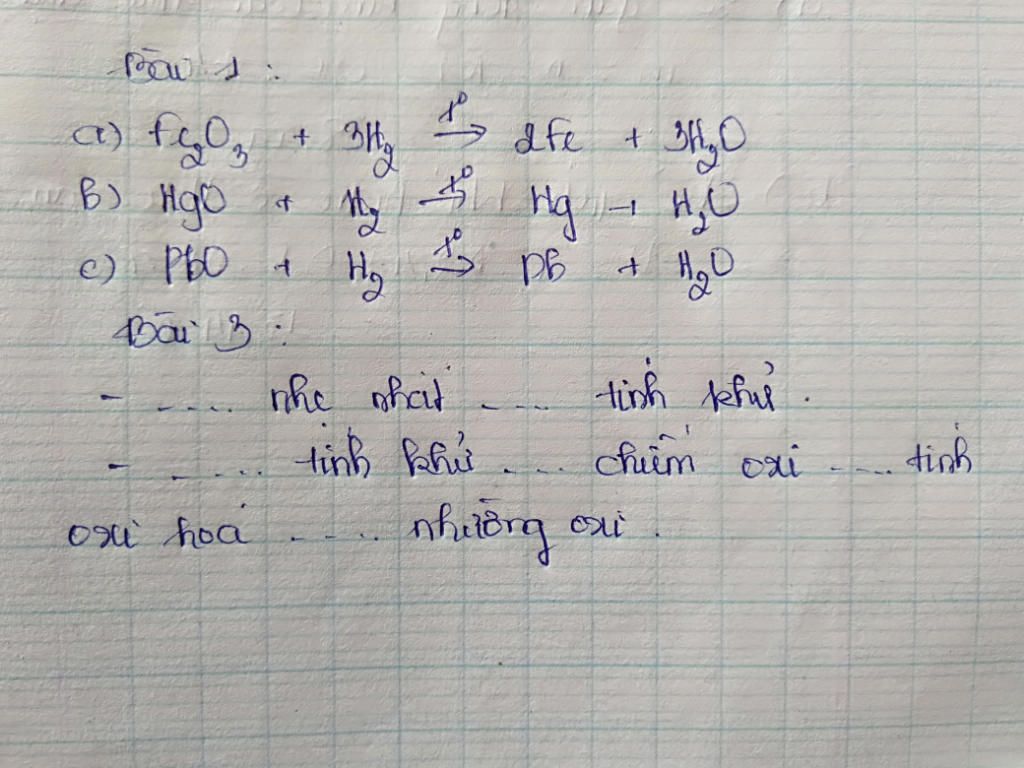 Bài 1 :
a) Fe₂O₃ + 3H₂ →(t°) 2Fe + 3H₂O
b) HgO + H₂ →(t°) Hg + H₂O
c) PbO + H₂ →(t°) Pb + H₂O
Bài 3 :
- .... nhẹ nhất .... tính khử .
- ..... tính khử .... chiếm oxi .... tính
oxi hoá ..... nhường oxi .